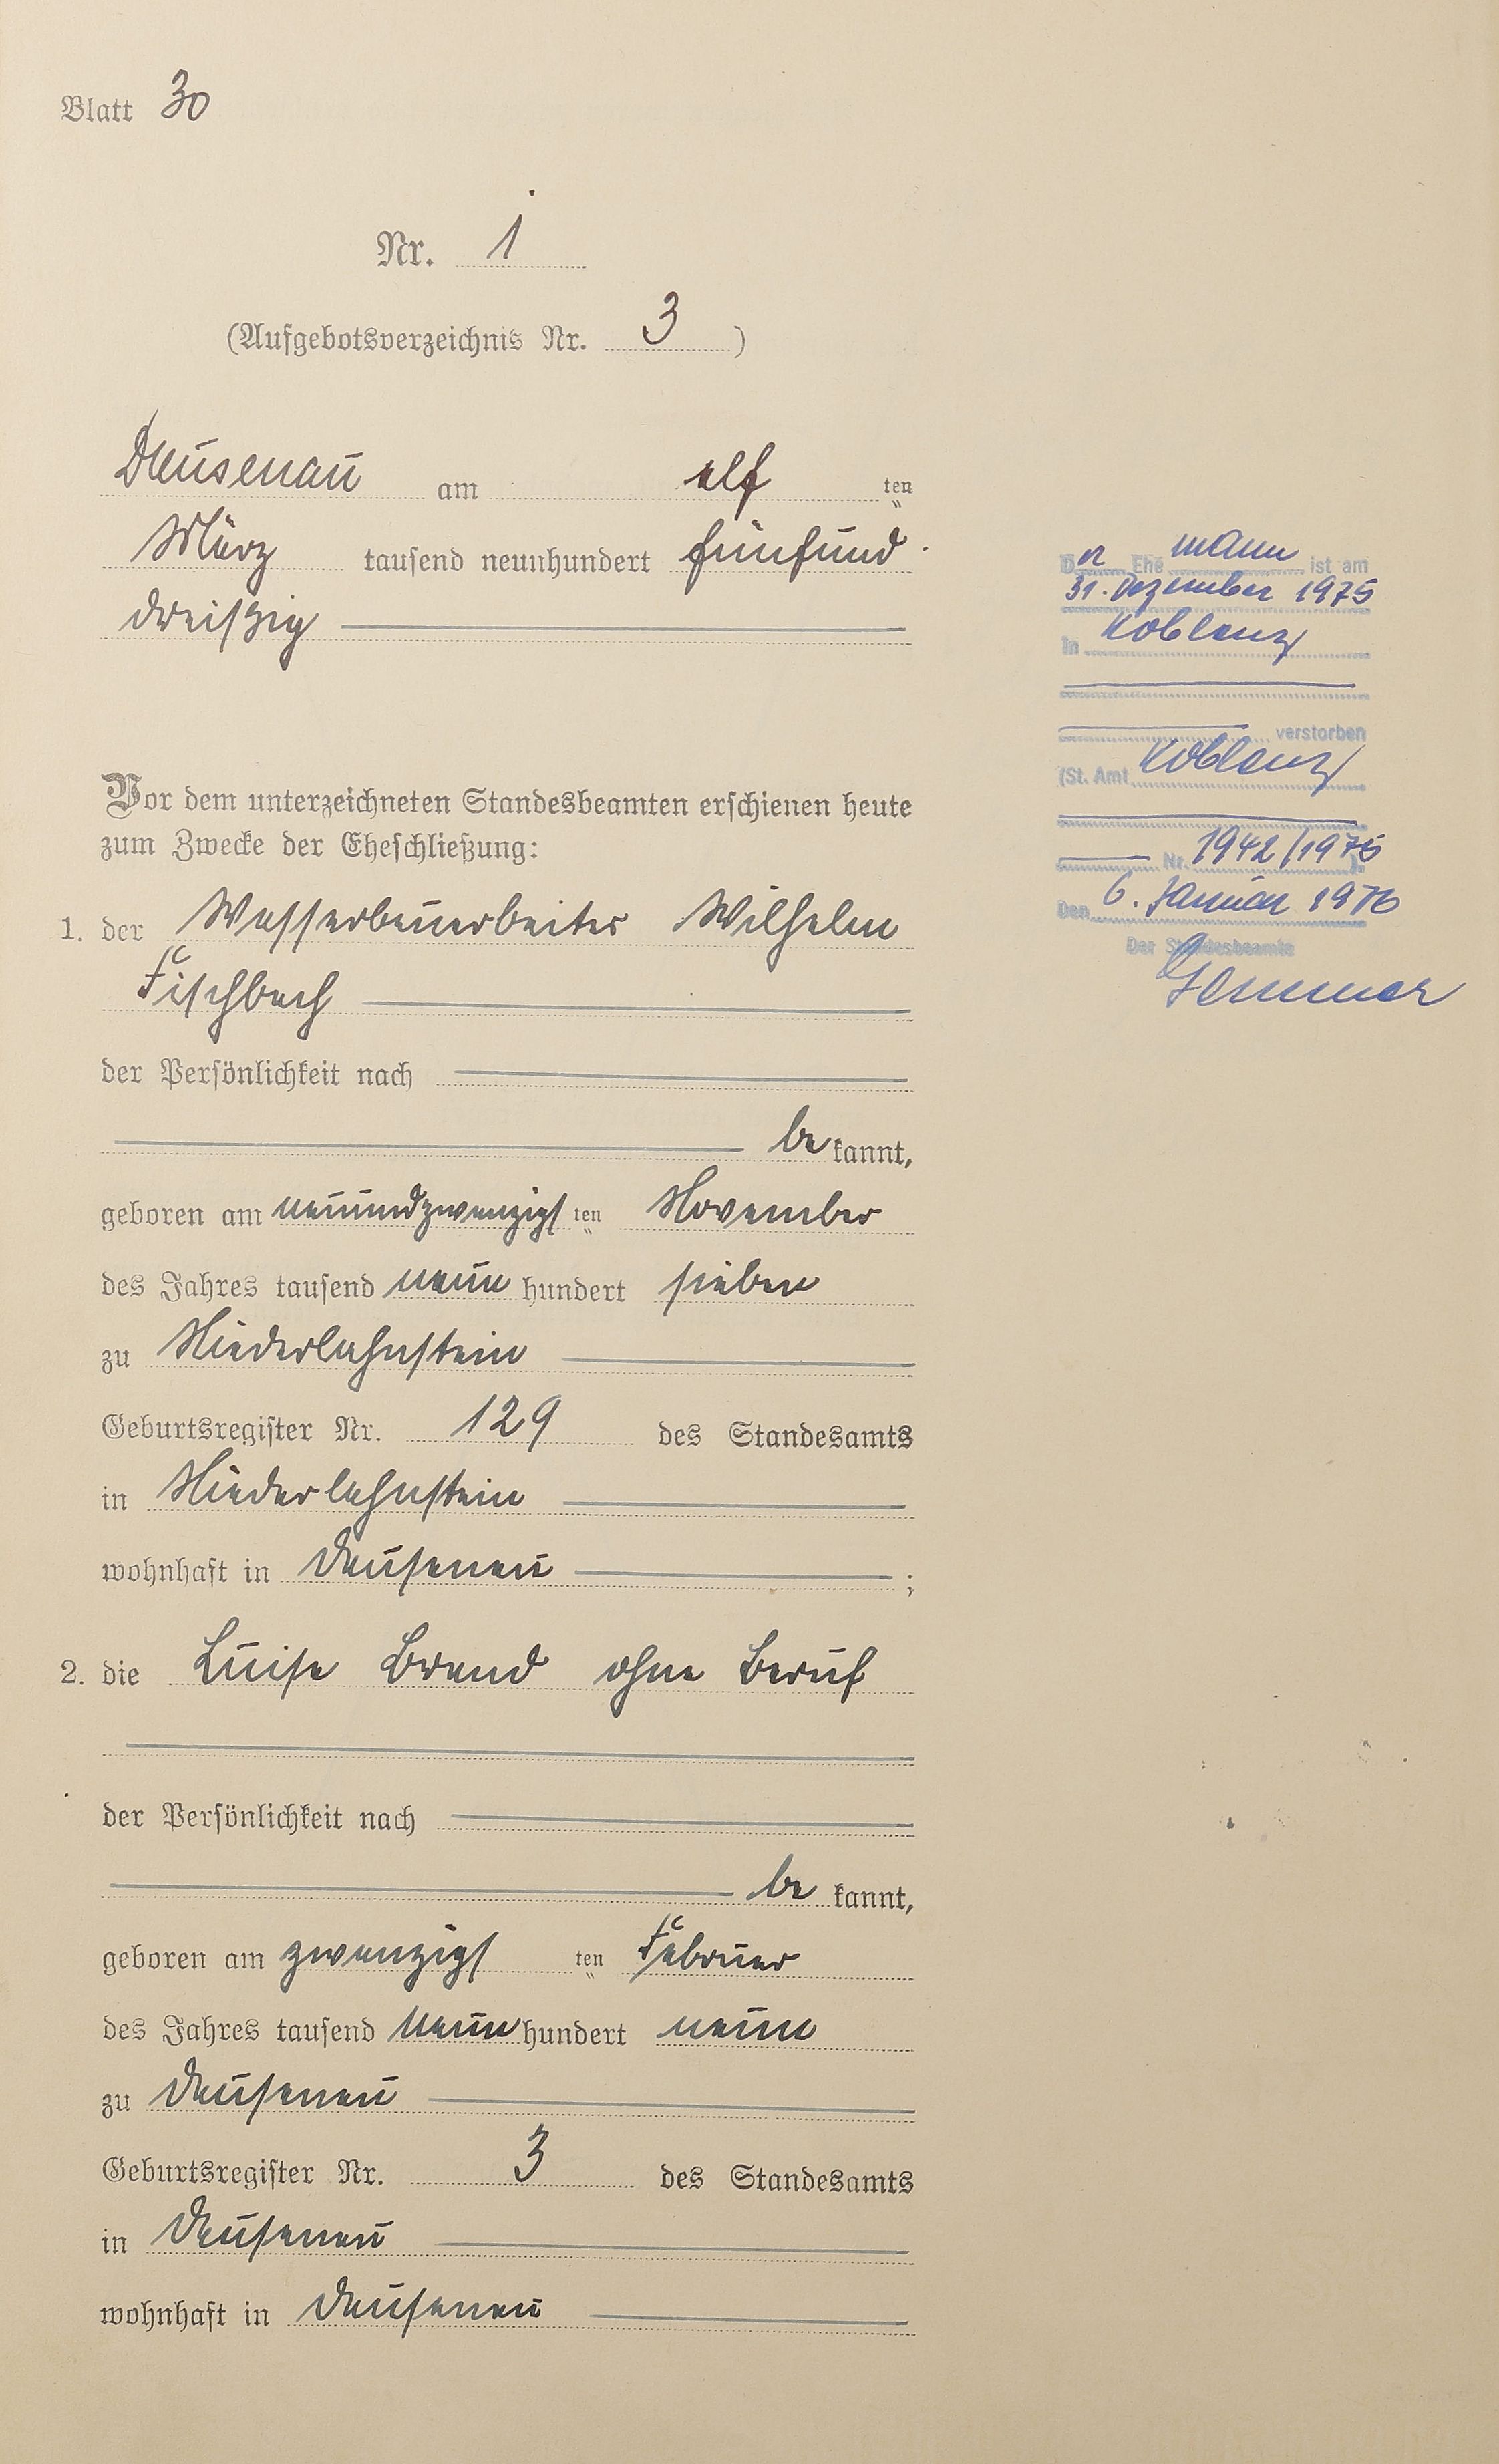 Blatt 30
Nr. 1
(Aufgebotsverzeichnis Nr. 3 )
Dausenau am elf ten
März tausend neunhundert fünfund
dreißig
Vor dem unterzeichneten Standesbeamten erschienen heute
zum Zwecke der Eheschließung:
1. der Wasserbauarbeiter Wilhelm
Fischbach
der Persönlichkeit nach
be kannt,
geboren am neunundzwanzigs ten November
des Jahres tausend neun hundert sieben
zu Niederlahnstein
Geburtsregister Nr. 129 des Standesamts
in Niederlahnstein
wohnhaft in Dausenau ;
2. die Luise Brand ohne Beruf
der Persönlichkeit nach
be kannt,
geboren am zwanzigs ten Februar
des Jahres tausend neun hundert neun
zu Dausenau
Geburtsregister Nr. 3 des Standesamts
in Dausenau
wohnhaft in Dausenau
Der Ehe mann ist am
31. Dezember 1975
in Koblenz
verstorben
(St. Amt Koblenz
Nr. 1942/1975 ).
Den 6. Januar 1976
Der Standesbeamte